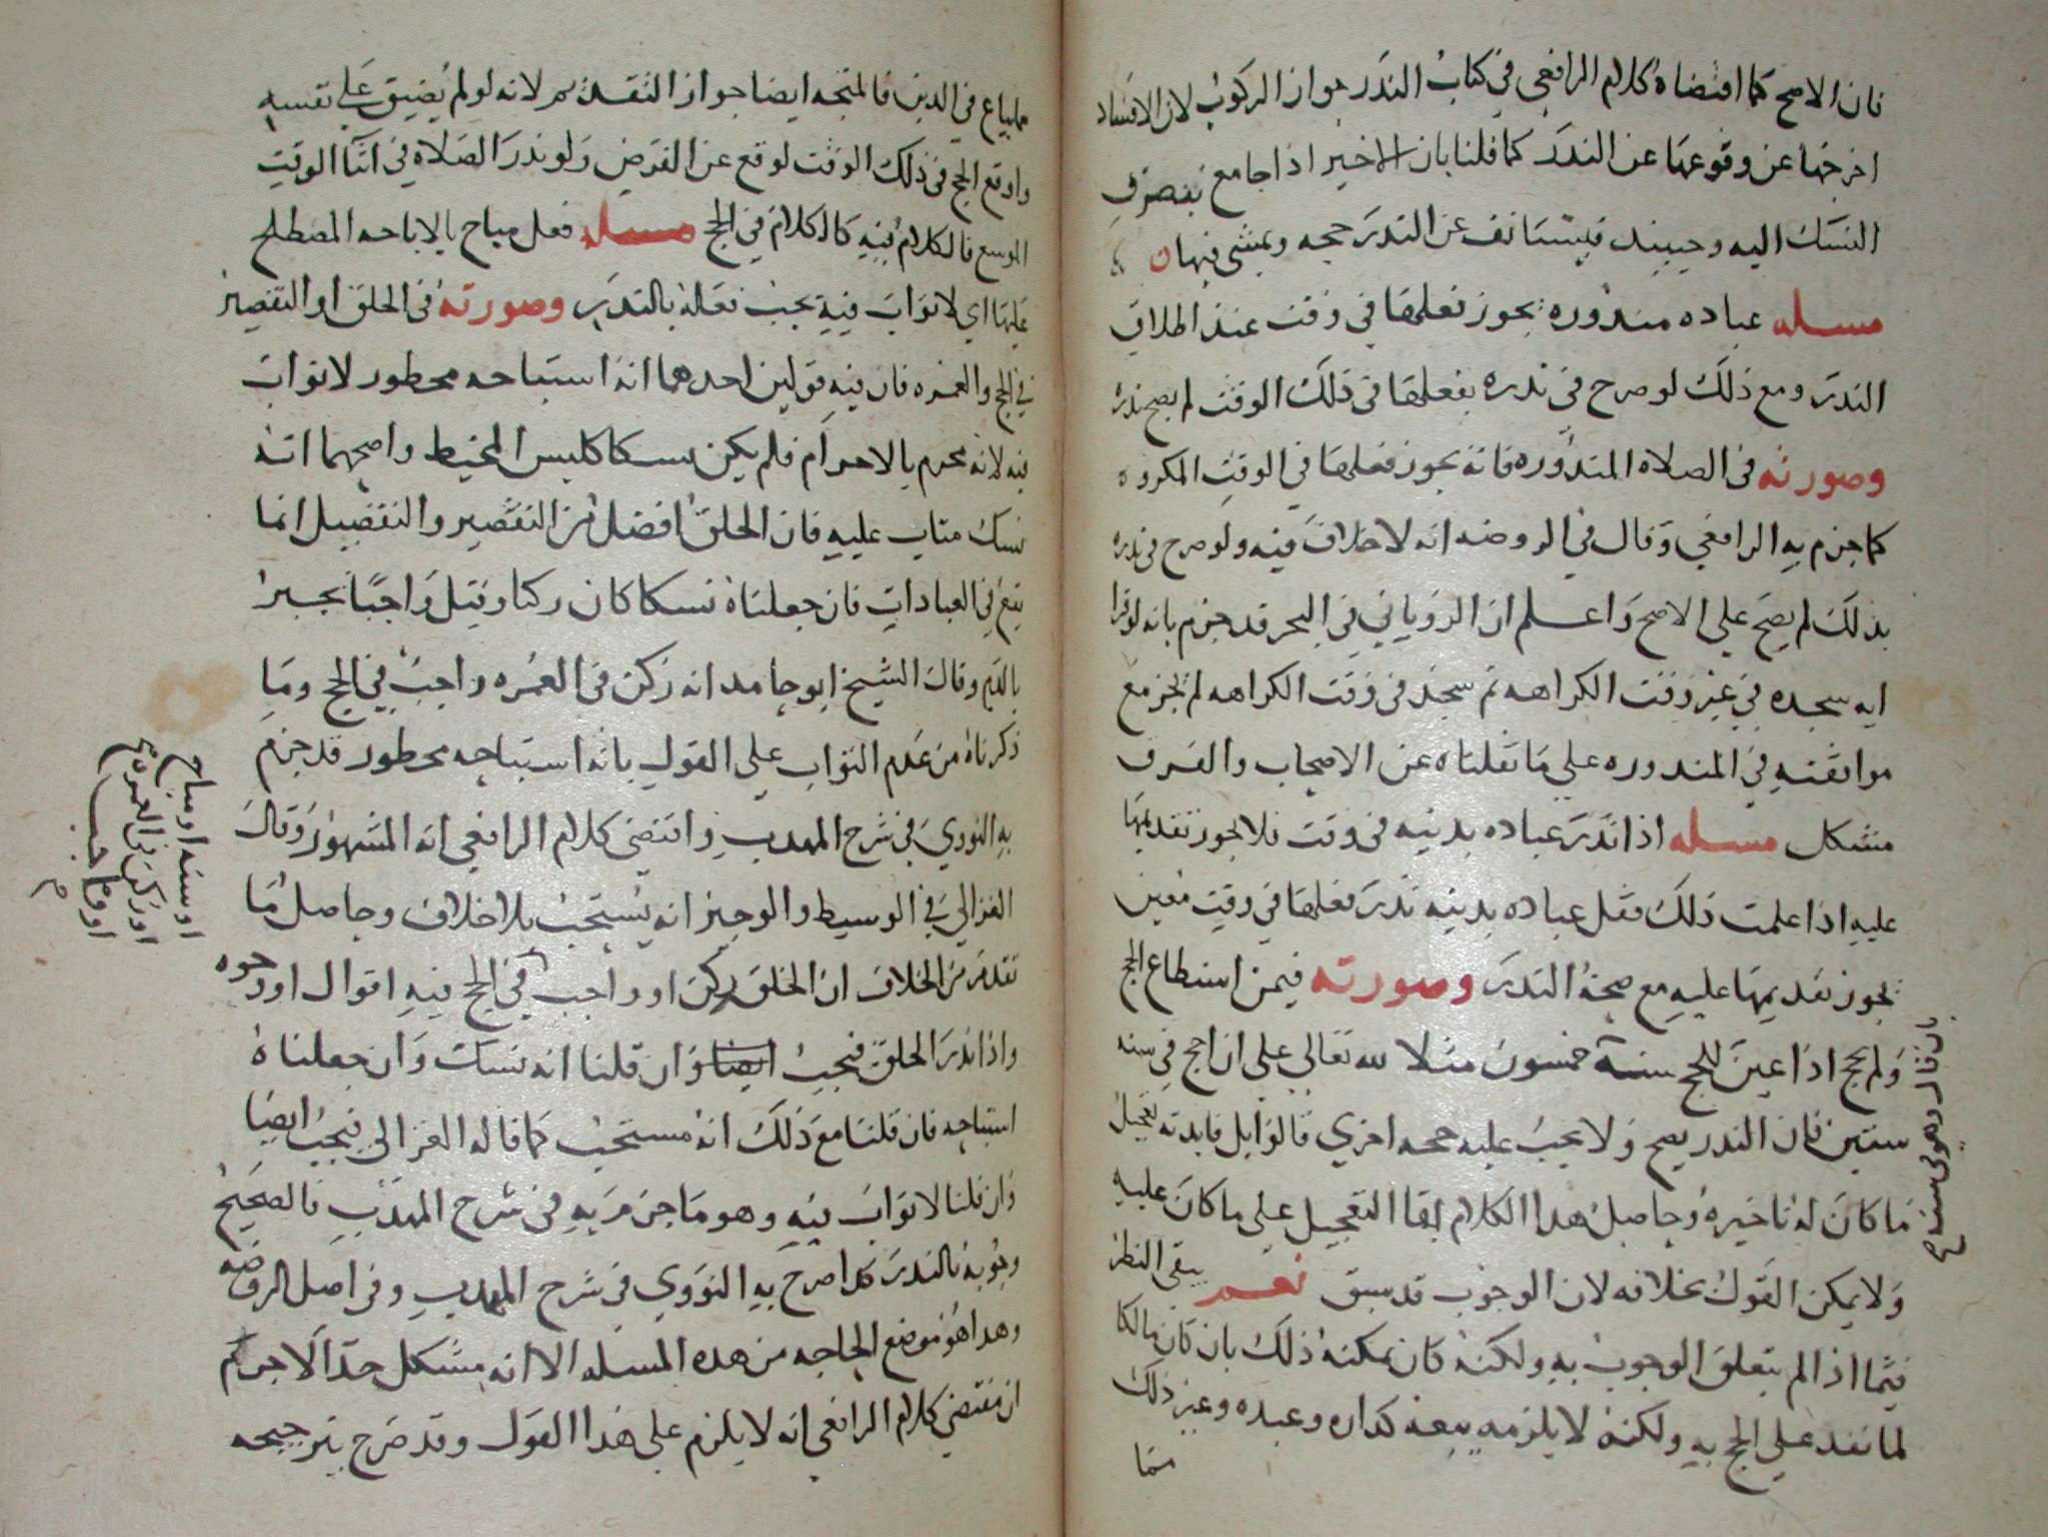 فان الاصح كما اقتضاه كلام الرافعي في كتاب النذر جواز الركوب لان الافساد
اخرجها عن وقوعها عن النذر كما قلنا بان الاخير اذا جامع تنصرف
النسك اليه وحينيذ فيستانف عن النذر حجه ويمشي فيها
مسله عباده منذوره يجوز فعلها في وقت عند اطلاق
النذر ومع ذلك لو صرح في نذره بفعلها في ذلك الوقت لم يصح نذره
وصورته في الصلاه المنذوره فانه يجوز فعلها في الوقت المكروه
كما جزم به الرافعي وقال في الروضه انه لا خلاف فيه ولو صرح في نذره
بذلك لم يصح على الاصح واعلم ان الروياني في البحر قد جزم بانه لو قرا
ايه سجده في غير وقت الكراهه ثم سجد في وقت الكراهه لم يجز مع
موافقته في المنذوره علي ما نقلناه عن الاصحاب والفرق
مشكل مسله اذا نذر عباده بدنيه في وقت فلا يجوز تقديمها
عليه اذا علمت ذلك فقل عباده بدنيه نذر فعلها في وقت معين
يجوز تقديمها عليه مع صحة النذر وصورته فيمن استطاع الحج
ولم يحج اذا عين للحج سنة خمسون مثلا لله تعالي علي ان احج في سنه
بان قال وهو في سنه
ستين فان النذر يصح ولا يجب عليه حجه اخري قالوا بل فايدته تعجيل
ما كان له تاخيره وحاصل هذا الكلام ابقا التعجيل علي ما كان عليه
ولا يمكن القول بخلافه لان الوجوب قد سبق نعم يبقي النظر
فيما اذا لم يتعلق الوجوب به ولكنه كان يمكنه ذلك بان كان مالكا
لما نفد علي الحج به ولكنه لا يلزمه بيعه كداره وعبده وغير ذلك
مما
مما يباع في الدين فالمتجه ايضا جواز التقديم لانه لو لم يضيق علي نفسه
واوقع الحج في ذلك الوقت لوقع عن الفرض ولو نذر الصلاة في اثنا الوقت
الموسع فالكلام فيه كالكلام في الحج مسله فعل مباح بالاباحه المصطلح
عليها اي لا ثواب فيه يجب فعله بالنذر وصورته في الحلق او التقصير
في الحج والعمره فان فيه قولين احدهما انه استباحه محظور لا ثواب
فيه لانه محرم بالاحرام فلم يكن نسكا كلبس المخيط واصحهما انه
نسك مثاب عليه فان الحلق افضل من التقصير والتفضيل انما
يقع في العبادات فان جعلناه نسكا كان ركنا وقيل واجبا يجبر
بالدم وقال الشيخ ابو حامد انه ركن في العمره واجب في الحج وما
ذكرناه من عدم الثواب علي القول بانه استباحه محظور قد جزم
به النووي في شرح المهذب واقتضي كلام الرافعي انه المشهور وقال
الغزالي في الوسيط والوجيز انه يستحب بلا خلاف وحاصل ما
تقدم من الخلاف ان الحلق ركن او واجب في الحج فيه اقوال او وجوه
او سنه او مباح
او ركن في العمره
او واجب
واذا نذر الحلق فيجب ايضا وان قلنا انه نسك وان جعلناه
استباحه فان قلنا مع ذلك انه مستحب كما قاله الغزالي فيجب ايضا
وان قلنا لا ثواب فيه وهو ما جزم به في شرح المهذب فالصحيح
وجوبه بالنذر كذا صرح به النووي في شرح المهذب وفي اصل الروضه
وهذا هو موضع الحاجه من هذه المسله الا انه مشكل جدا لا جرم
ان مقتضي كلام الرافعي انه لا يلزم علي هذا القول وقد صرح بترجيحه